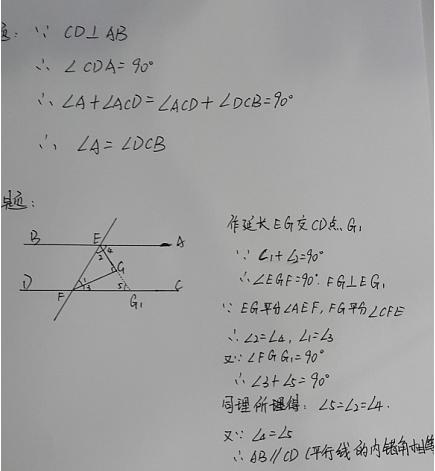 ∵ CD⊥AB
∴ ∠CDA=90°
∴ ∠A+∠ACD=∠ACD+∠DCB=90°
∴ ∠A=∠DCB
题:
B E A
2 4
G
D F 1 3 5 G₁ C
作延长EG交CD点G₁
∵ ∠1+∠2=90°
∴∠EGF=90°. FG⊥EG,
∵ EG平分∠AEF, FG平分∠CFE
∴ ∠2=∠4, ∠1=∠3
又∵ ∠FGG₁=90°
∴ ∠3+∠5=90°
同理所得: ∠5=∠2=∠4.
又∵ ∠4=∠5
∴ AB∥CD (平行线的内错角相等